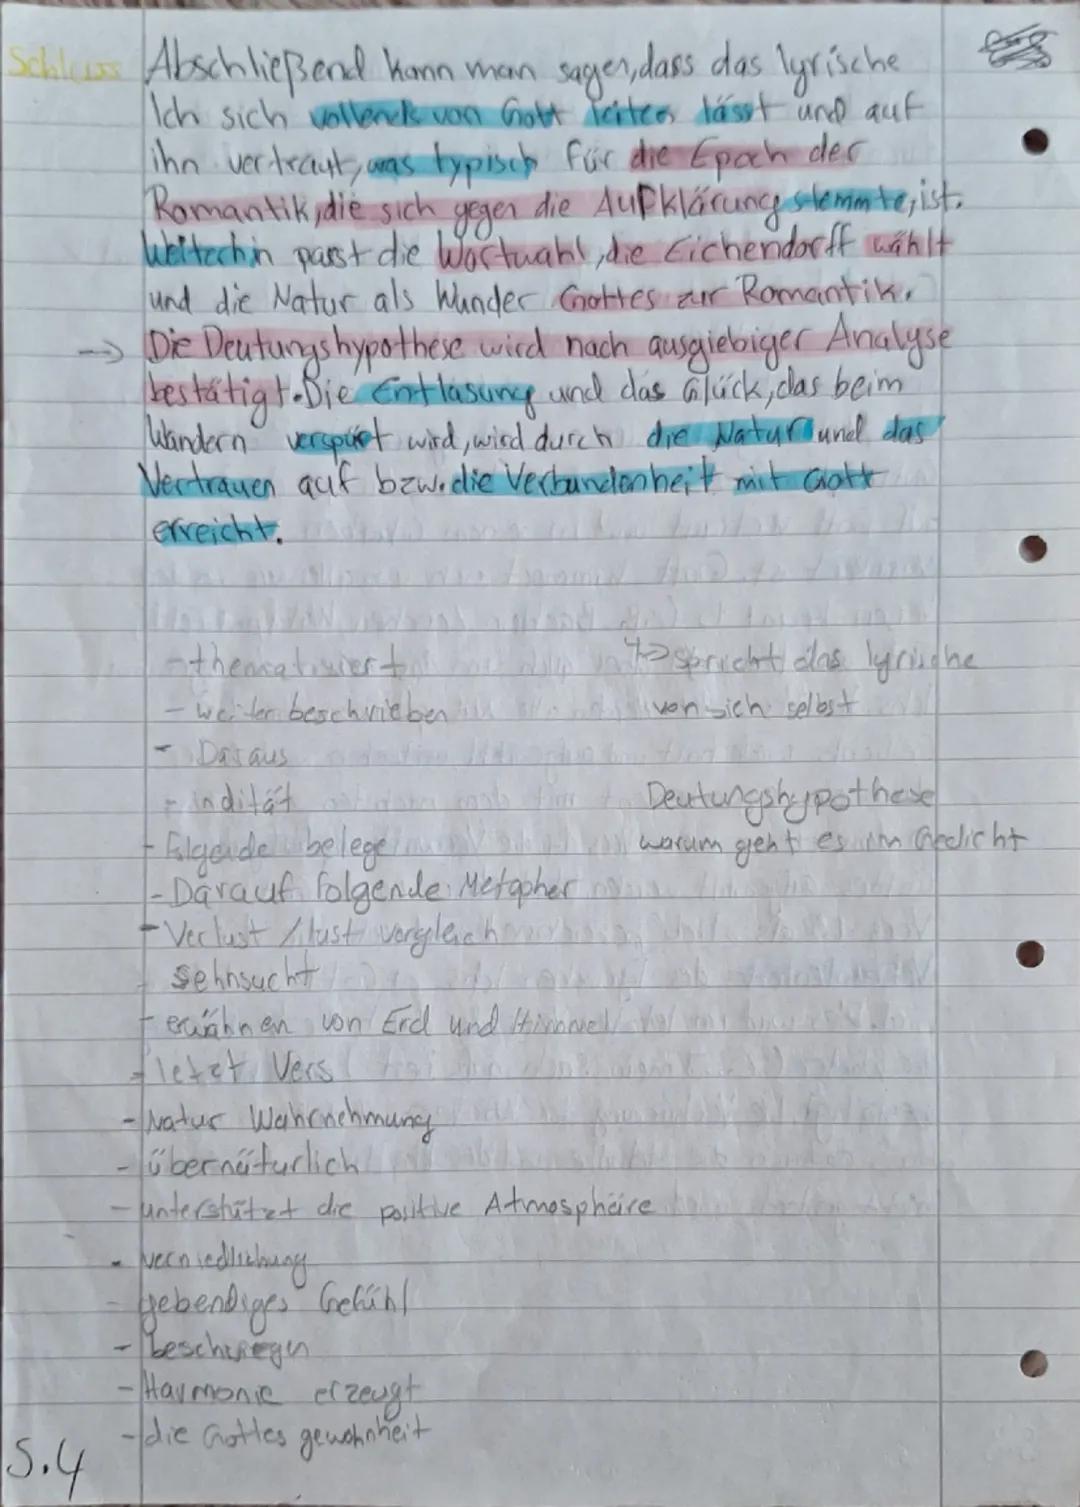 Schluss
Abschließend kann man sagen, dass das lyrische
Ich sich vollends von Gott leiten lässt und auf
ihn vertraut, was typisch für die Epoch der
Romantik, die sich gegen die Aufklärung stemmte, ist.
Weiterhin passt die Wortwahl, die Eichendorff wählt
und die Natur als Wunder Gottes zur Romantik.
→ Die Deutungshypothese wird nach ausgiebiger Analyse
bestätigt. Die Entlasung und das Glück, das beim
Wandern verspürt wird, wird durch die Natur und das
Vertrauen auf bzw. die Verbundenheit mit Gott
erreicht.
- thematisiert
- weiter beschrieben
- Daraus
- indität
- Folgende belege
- Darauf folgende Metapher
- Verlust / lust vergleich
- Sehnsucht
- erwähnen von Erd und Himmel
- letzt Vers
- Natur Wahrnehmung
- übernatürlich
- unterstützt die positive Atmosphäre
- verniedlichung
- Gefühl
-
- Harmonie erzeugt
- die Gottes gewohnheit
↳ spricht das lyrische
von sich selbst
Deutungshypothese
warum geht es im Gedicht
S.4